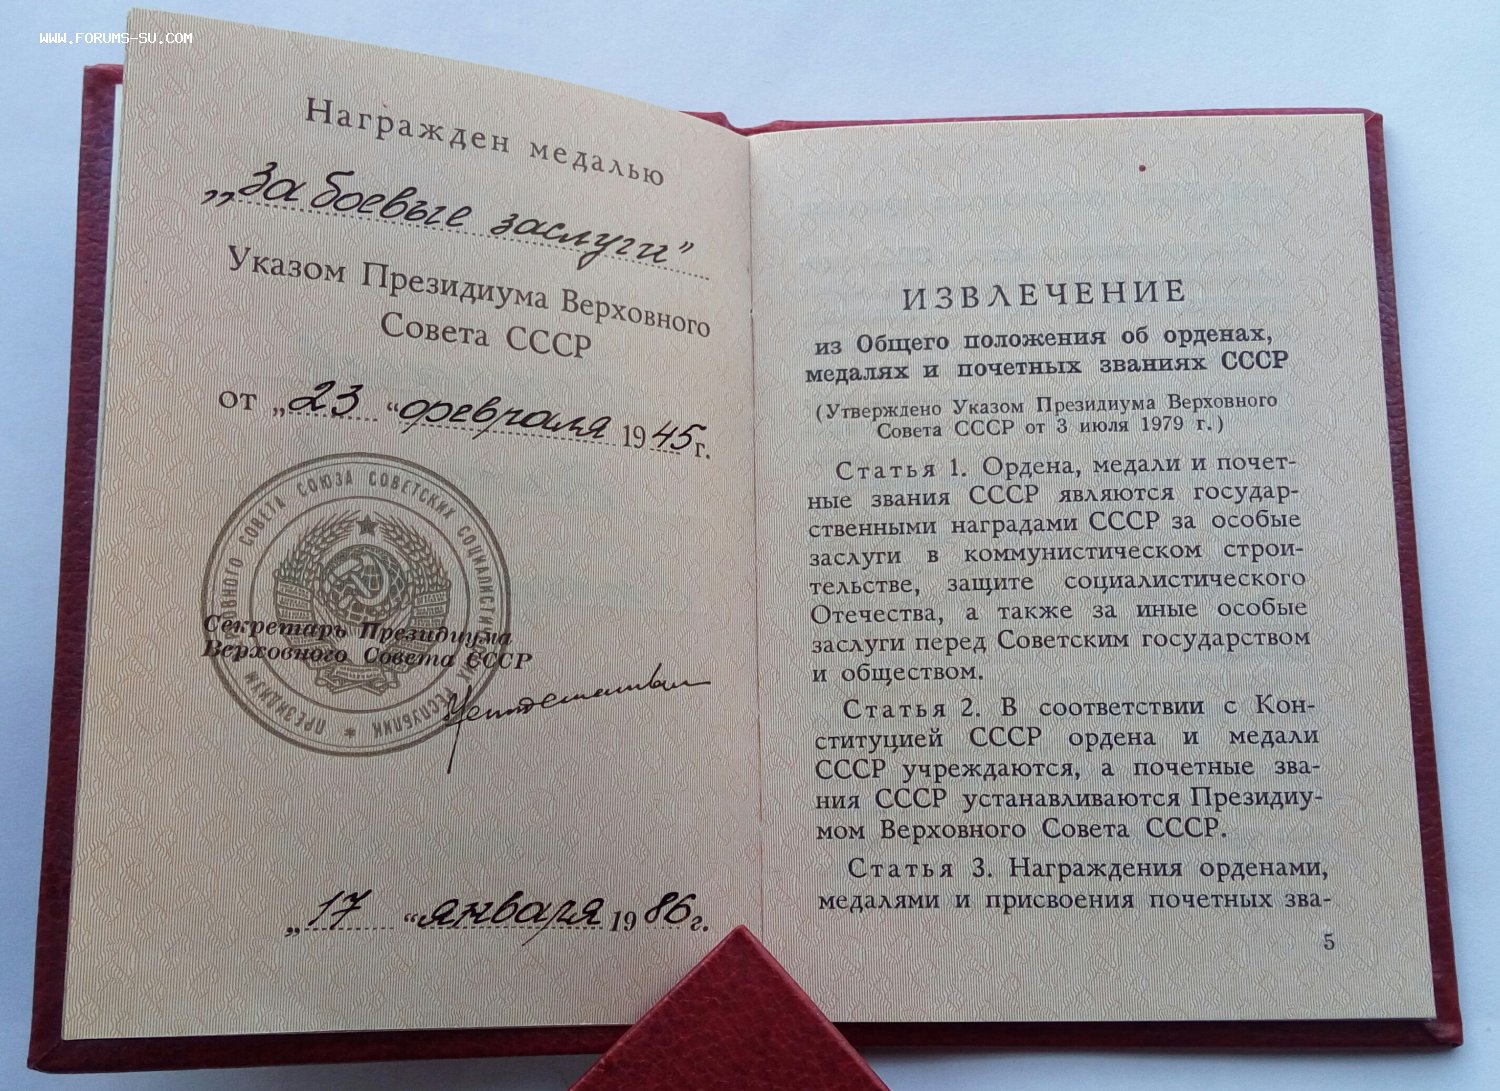 WWW.FORUMS-SU.COM
Награжден медалью
„За боевые заслуги"
Указом Президиума Верховного
Совета СССР
от „23 “ февраля 1945 г.
ПРЕЗИДИУМ ВЕРХОВНОГО СОВЕТА СОЮЗА СОВЕТСКИХ СОЦИАЛИСТИЧЕСКИХ РЕСПУБЛИК *
Секретарь Президиума
Верховного Совета СССР
„17 “ января 1986 г.
ИЗВЛЕЧЕНИЕ
из Общего положения об орденах,
медалях и почетных званиях СССР
(Утверждено Указом Президиума Верховного
Совета СССР от 3 июля 1979 г.)
Статья 1. Ордена, медали и почет-
ные звания СССР являются государ-
ственными наградами СССР за особые
заслуги в коммунистическом строи-
тельстве, защите социалистического
Отечества, а также за иные особые
заслуги перед Советским государством
и обществом.
Статья 2. В соответствии с Кон-
ституцией СССР ордена и медали
СССР учреждаются, а почетные зва-
ния СССР устанавливаются Президиу-
мом Верховного Совета СССР.
Статья 3. Награждения орденами,
медалями и присвоения почетных зва-
5